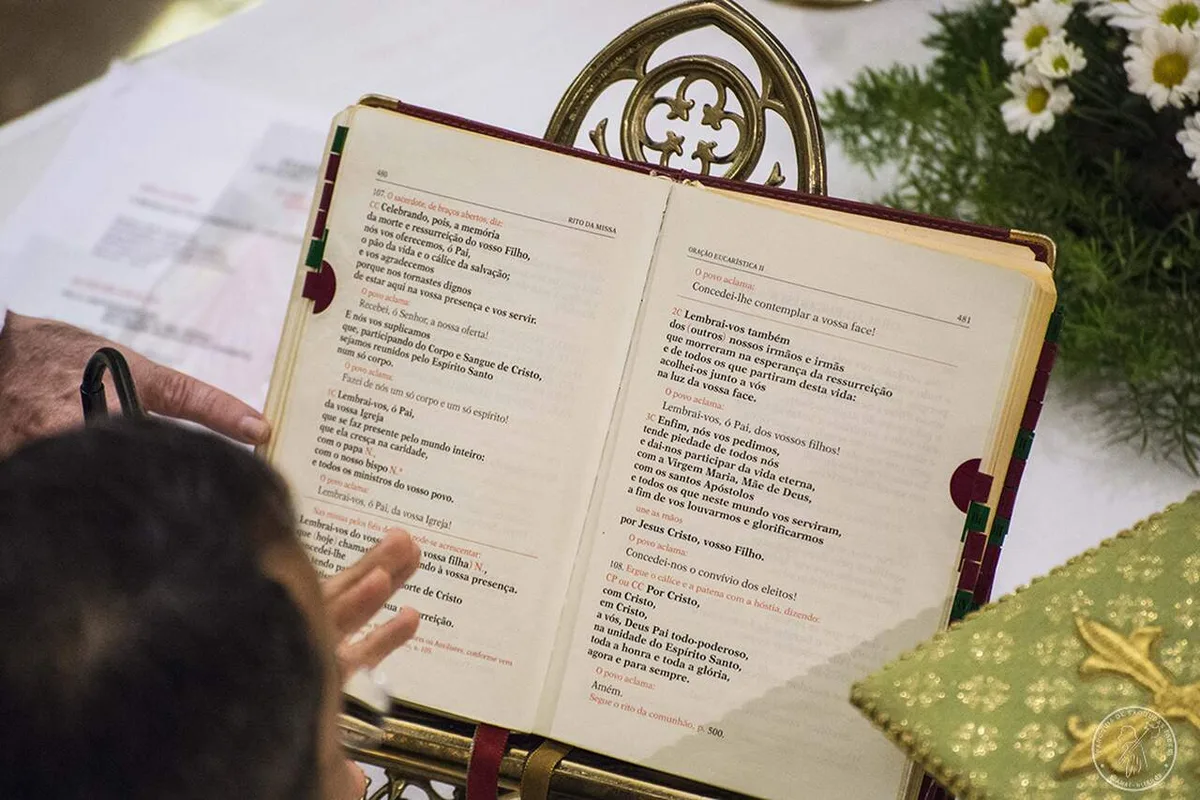 480
RITO DA MISSA
107. O sacerdote, de braços abertos, diz:
CC Celebrando, pois, a memória
da morte e ressurreição do vosso Filho,
nós vos oferecemos, ó Pai,
o pão da vida e o cálice da salvação;
e vos agradecemos
porque nos tornastes dignos
de estar aqui na vossa presença e vos servir.
O povo aclama:
Recebei, ó Senhor, a nossa oferta!
E nós vos suplicamos
que, participando do Corpo e Sangue de Cristo,
sejamos reunidos pelo Espírito Santo
num só corpo.
O povo aclama:
Fazei de nós um só corpo e um só espírito!
1C Lembrai-vos, ó Pai,
da vossa Igreja
que se faz presente pelo mundo inteiro:
que ela cresça na caridade,
com o papa N.,
com o nosso bispo N.*
e todos os ministros do vosso povo.
O povo aclama:
Lembrai-vos, ó Pai, da vossa Igreja!
Nas missas pelos fiéis pode-se acrescentar:
Lembrai-vos do vosso vossa filha) N.,
que (hoje) à vossa presença.
morte de Cristo
ressurreição.
conforme vem
ORAÇÃO EUCARÍSTICA II
481
O povo aclama:
Concedei-lhe contemplar a vossa face!
2C Lembrai-vos também
dos (outros) nossos irmãos e irmãs
que morreram na esperança da ressurreição
e de todos os que partiram desta vida:
acolhei-os junto a vós
na luz da vossa face.
O povo aclama:
Lembrai-vos, ó Pai, dos vossos filhos!
3C Enfim, nós vos pedimos,
tende piedade de todos nós
e dai-nos participar da vida eterna,
com a Virgem Maria, Mãe de Deus,
com os santos Apóstolos
e todos os que neste mundo vos serviram,
a fim de vos louvarmos e glorificarmos
une as mãos
por Jesus Cristo, vosso Filho.
O povo aclama:
Concedei-nos o convívio dos eleitos!
108. Ergue o cálice e a patena com a hóstia, dizendo:
CP ou CC Por Cristo,
com Cristo,
em Cristo,
a vós, Deus Pai todo-poderoso,
na unidade do Espírito Santo,
toda a honra e toda a glória,
agora e para sempre.
O povo aclama:
Amém.
Segue o rito da comunhão, p. 500.